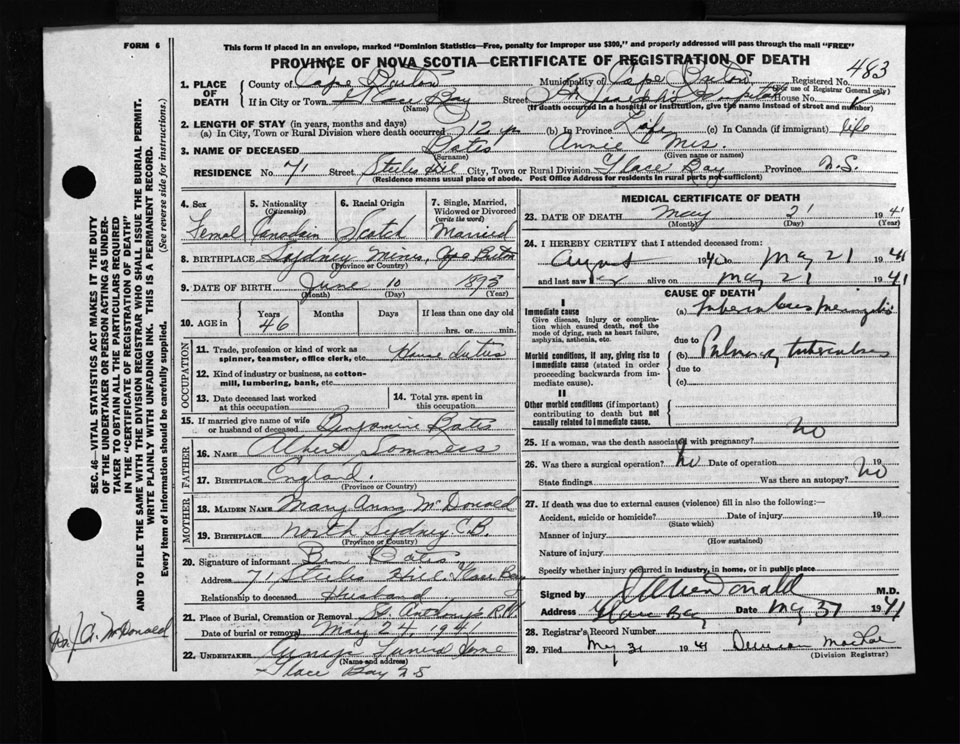 FORM 6
This form if placed in an envelope, marked "Dominion Statistics—Free, penalty for improper use $300," and properly addressed will pass through the mail "FREE"
PROVINCE OF NOVA SCOTIA—CERTIFICATE OF REGISTRATION OF DEATH
483
1. PLACE OF DEATH
County of Cape Breton Municipality of Cape Breton Registered No.
(For use of Registrar General only)
If in City or Town Glace Bay Street St. Joseph's Hospital House No.
(Name) (If death occurred in a hospital or institution, give the name instead of street and number)
2. LENGTH OF STAY (in years, months and days)
(a) In City, Town or Rural Division where death occurred 12 (b) In Province Life (c) In Canada (if immigrant) life
3. NAME OF DECEASED Annie Mrs.
(Surname) (Given name or names)
RESIDENCE No. 71 Street City, Town or Rural Division Glace Bay Province N.S.
(Residence means usual place of abode. Post Office Address for residents in rural parts not sufficient)
4. Sex
Femal
5. Nationality (Citizenship)
Canadain
6. Racial Origin
Scotch
7. Single, Married, Widowed or Divorced (write the word)
Married
8. BIRTHPLACE Sydney Mines, Cape Breton
(Province or Country)
9. DATE OF BIRTH June 10 1893
(Month) (Day) (Year)
10. AGE in Years 46 Months Days If less than one day old
hrs. or min.
OCCUPATION
11. Trade, profession or kind of work as spinner, teamster, office clerk, etc. House duties
12. Kind of industry or business, as cotton-mill, lumbering, bank, etc.
13. Date deceased last worked at this occupation
14. Total yrs. spent in this occupation
15. If married give name of wife or husband of deceased Benjamine
FATHER
16. NAME Albert Sommers
17. BIRTHPLACE England
(Province or Country)
MOTHER
18. MAIDEN NAME Mary Ann McDonald
19. BIRTHPLACE North Sydney C.B.
(Province or Country)
20. Signature of informant Ben
Address 71 Glace Bay
Relationship to deceased Husband
21. Place of Burial, Cremation or Removal St. Anthony's
Date of burial or removal May 24, 1941
22. UNDERTAKER Funeral Home
(Name and address)
Glace Bay NS
MEDICAL CERTIFICATE OF DEATH
23. DATE OF DEATH May 21 1941
(Month) (Day) (Year)
24. I HEREBY CERTIFY that I attended deceased from:
August 1940 to May 21 1941
and last saw her alive on May 21 1941
CAUSE OF DEATH
I
Immediate cause
Give disease, injury or complication which caused death, not the mode of dying, such as heart failure, asphyxia, asthenia, etc.
(a) tuberculous meningitis
due to
Morbid conditions, if any, giving rise to immediate cause (stated in order proceeding backwards from immediate cause).
(b) Pulmonary tuberculosis
due to
(c)
II
Other morbid conditions (if important) contributing to death but not causally related to immediate cause.
25. If a woman, was the death associated with pregnancy? no
26. Was there a surgical operation? No Date of operation 19
State findings Was there an autopsy? no
27. If death was due to external causes (violence) fill in also the following:—
Accident, suicide or homicide? Date of injury 19
(State which)
Manner of injury
(How sustained)
Nature of injury
Specify whether injury occurred in industry, in home, or in public place
Signed by MacDonald M.D.
Address Glace Bay Date May 31 1941
28. Registrar's Record Number
29. Filed May 31 1941 Duncan MacRae
(Division Registrar)
SEC. 46—VITAL STATISTICS ACT MAKES IT THE DUTY
OF THE UNDERTAKER OR PERSON ACTING AS UNDER-
TAKER TO OBTAIN ALL THE PARTICULARS REQUIRED
IN THE "CERTIFICATE OF REGISTRATION OF DEATH"
AND TO FILE THE SAME WITH THE DIVISION REGISTRAR WHO SHALL ISSUE THE BURIAL PERMIT.
WRITE PLAINLY WITH UNFADING INK. THIS IS A PERMANENT RECORD.
Every item of information should be carefully supplied. (See reverse side for instructions.)
McDonald